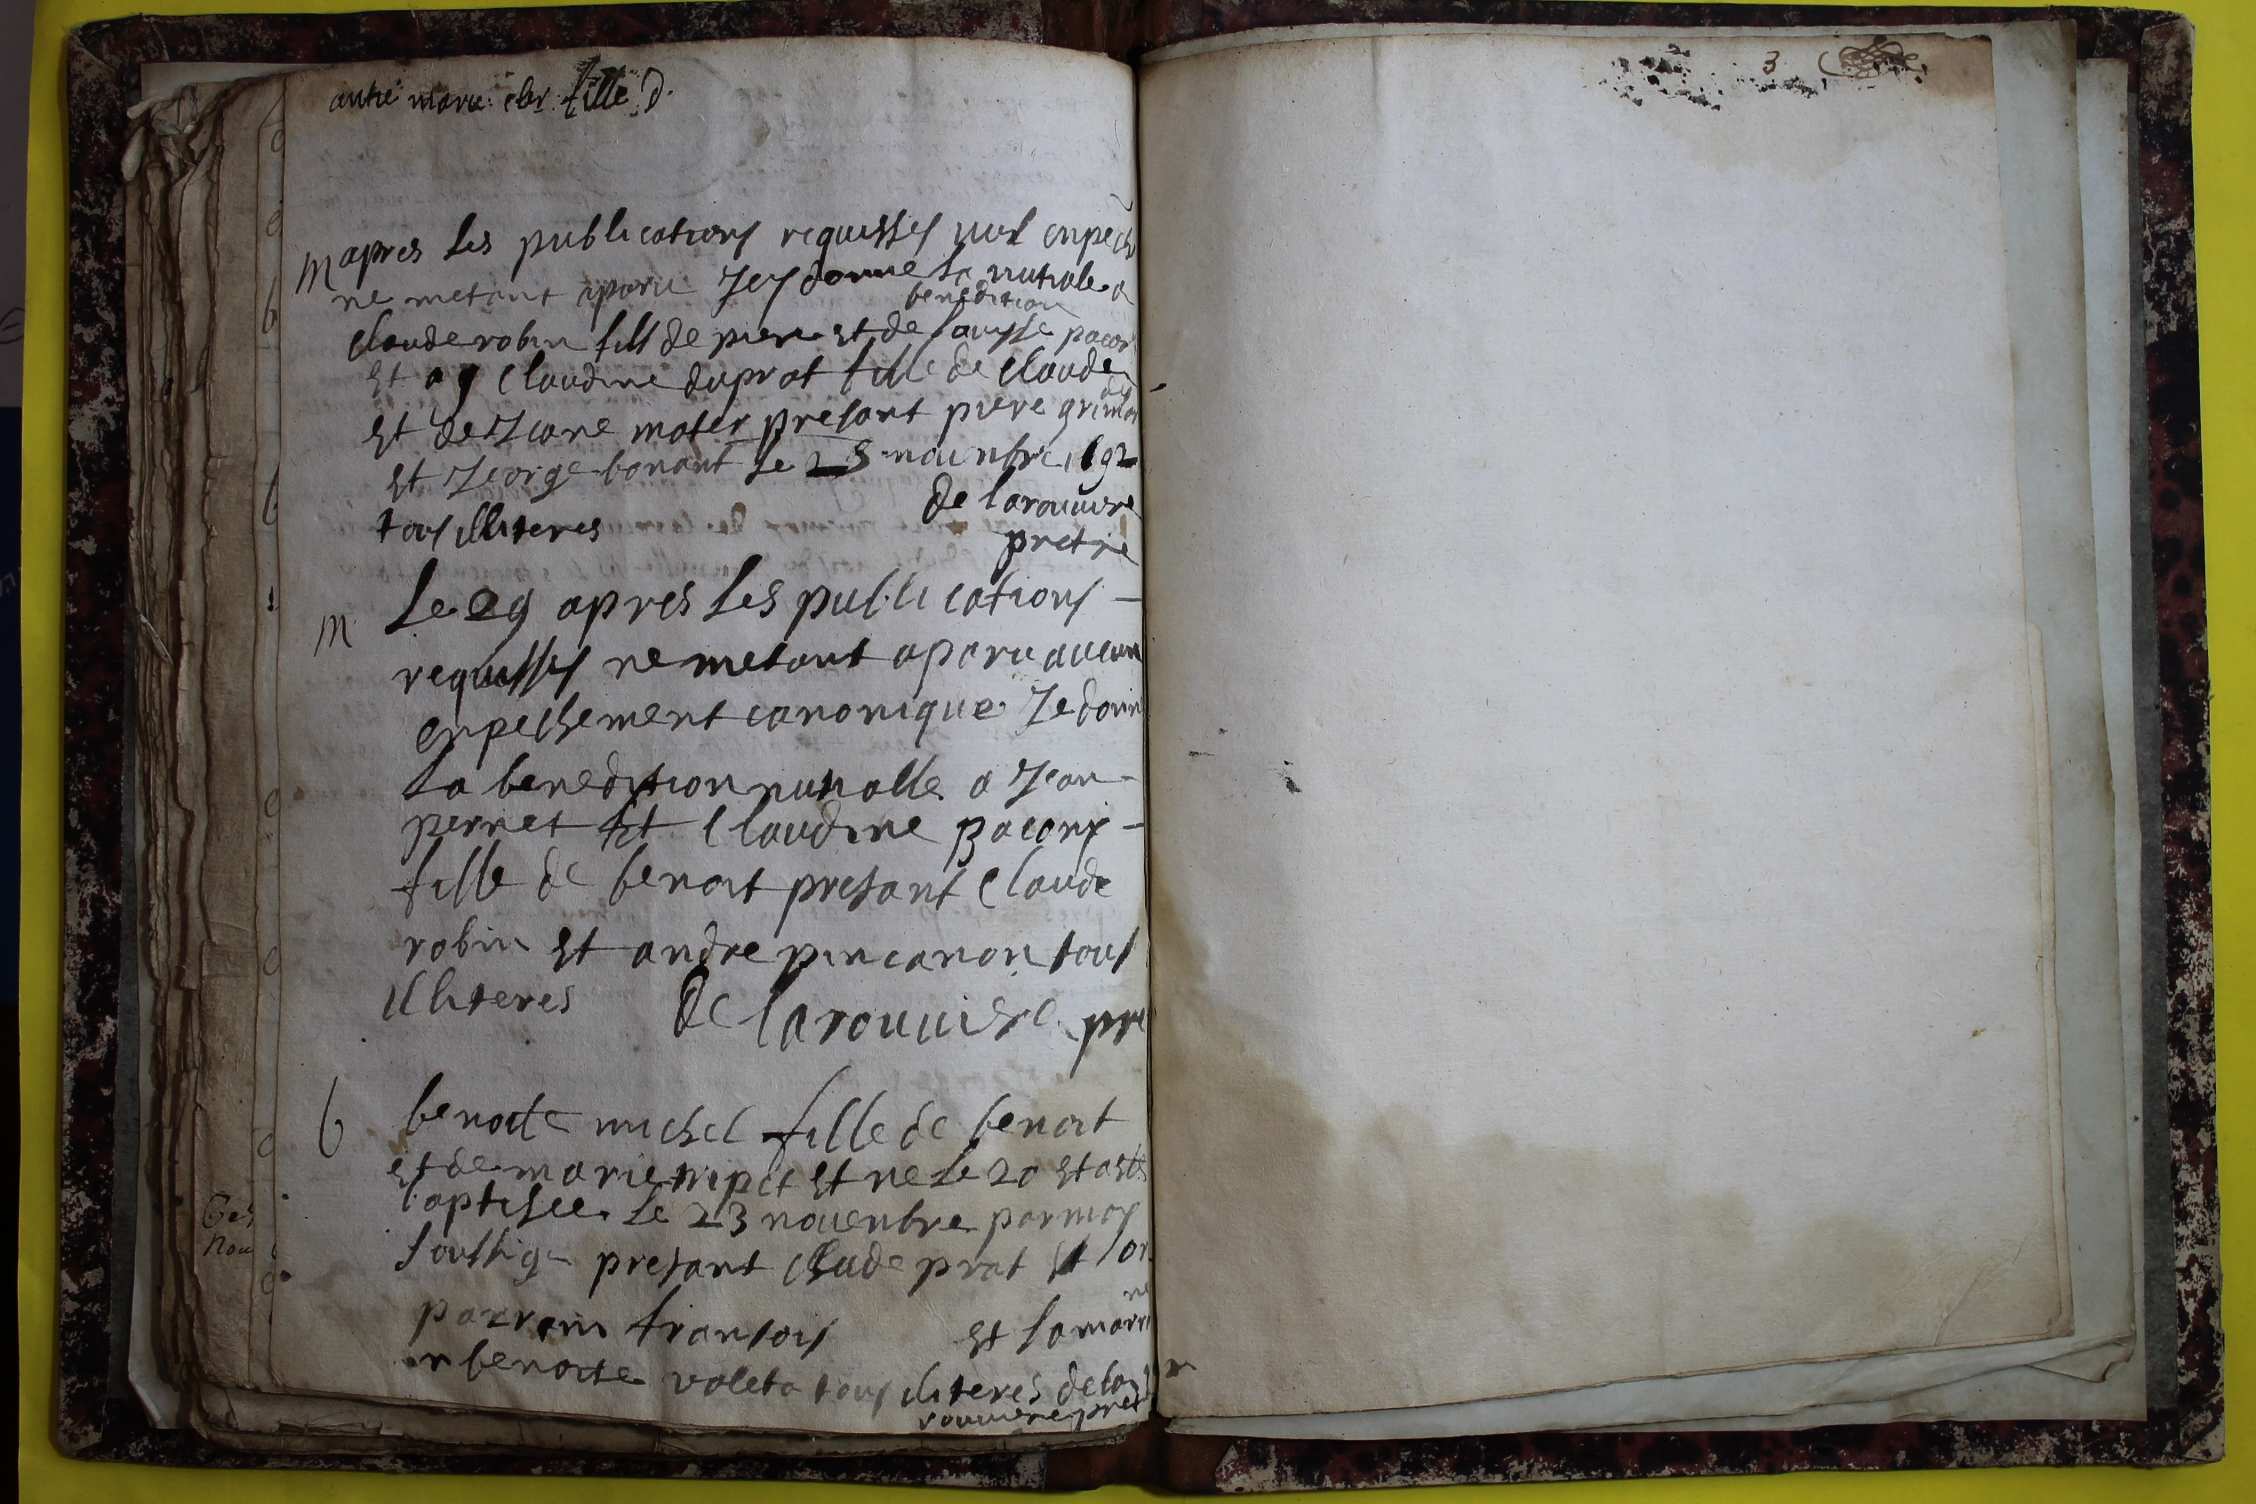 autre marie fille d.
M apres les publications requisses nul enpeche
ne metant aparu Jey donne la nutiale a
benedition
Claude robin fils de piere et de louysse pacor
et a Claudine duprat fille de Claude
et de Jeane mater presant piere grimo
et George bonant le 25 nouenbre 1692
tous illiteres de larouuiere
pretre
M Le 29 apres les publications
requisses ne metant aparu aucun
enpechement canonique Je donn
la benedition nutialle a Jean
perret et Claudine pacorx
fille de benoit presant Claude
robin et andre pincanon tous
illiteres De larouuiere pre
b benoite michel fille de benoit
et de marie et ne le 20 et a este
baptisee le 23 nouenbre par moy
soussigne presant Claude prat et
parrain fransois et la marr
ne
benoite valeta tous iliteres de la
rouuiere pret
3